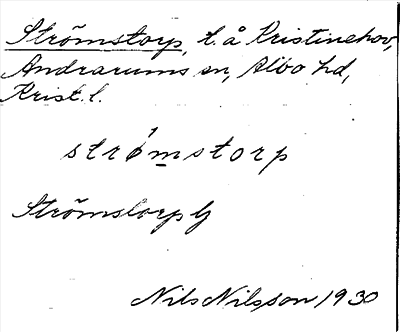 Strömstorp, t. å Kristinehov,
Andrarums sn, Albo hd,
Krist. l.
strø̄́mstorp
Strömstorp G
Nils Nilsson 1930